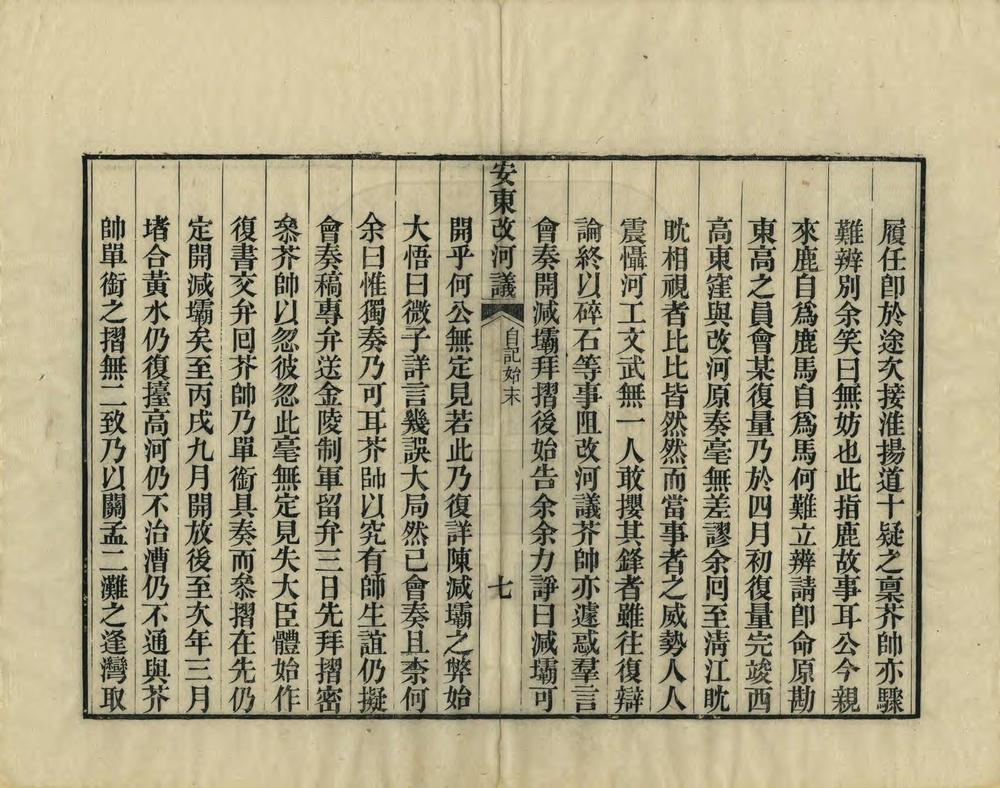 履任卽於途次接淮揚道十疑之稟芥帥亦驟
難辨別余笑曰無妨也此指鹿故事耳公今親
來鹿自爲鹿馬自爲馬何難立辨請卽命原勘
東高之員會某復量乃於四月初復量完竣西
高東窪與改河原奏毫無差謬余囘至淸江眈
眈相視者比比皆然然而當事者之威勢人人
震懾河工文武無一人敢攖其鋒者雖往復辯
論終以碎石等事阻改河議芥帥亦遽惑羣言
會奏開減壩拜摺後始告余余力諍曰減壩可
安東改河議
自記始末
七
開乎何公無定見若此乃復詳陳減壩之弊始
大悟曰微子詳言幾誤大局然已會奏且柰何
余曰惟獨奏乃可耳芥帥以究有師生誼仍擬
會奏稿專弁送金陵制軍留弁三日先拜摺密
叅芥帥以忽彼忽此毫無定見失大臣體始作
復書交弁囘芥帥乃單銜具奏而叅摺在先仍
定開減壩矣至丙戌九月開放後至次年三月
堵合黃水仍復擡高河仍不治漕仍不通與芥
帥單銜之摺無二致乃以關孟二灘之逢灣取